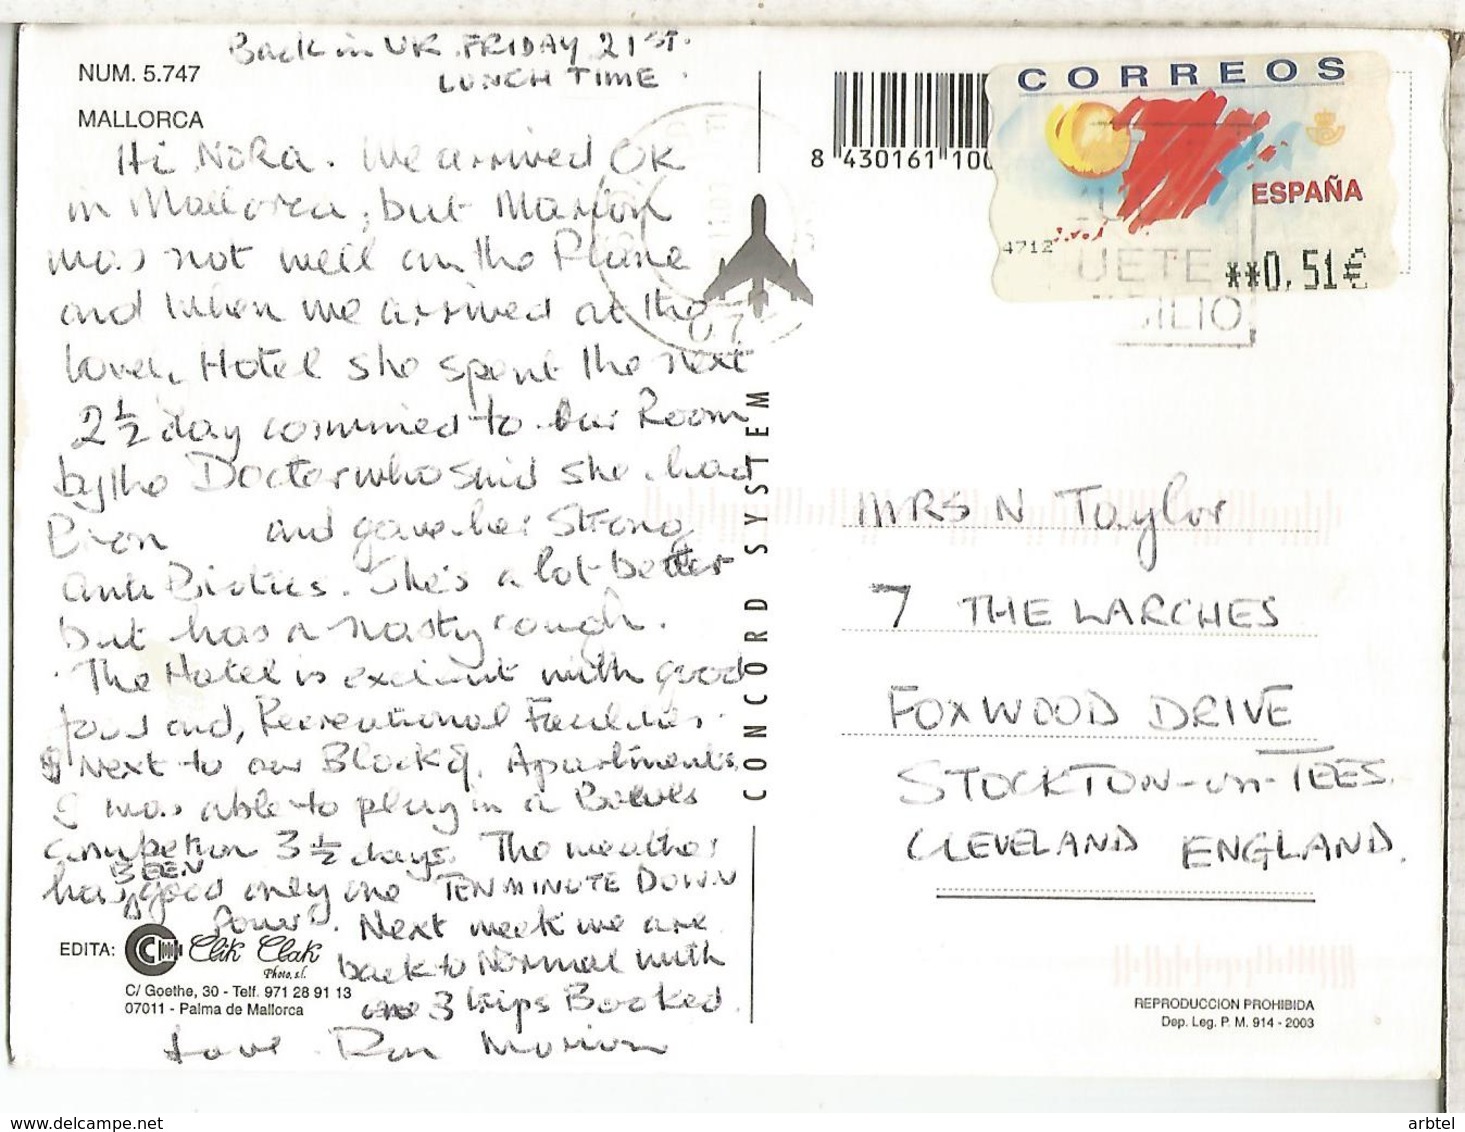 Back in UK FRIDAY 21ST.
LUNCH TIME.
NUM. 5.747
MALLORCA
Hi NORA. We arrived OK
in Mallorca, but Marion
was not well on the Plane
and when we arrived at the
Hotel she spent the next
2½ day confined to our Room
by the Doctor who said she had
and gave her Strong
anti Biotics. She's a lot better
but has a nasty cough.
The Hotel is excelent with good
food and, Recreational Facilities.
Next to our Block of Apartments.
I was able to play in a Bowls
competion 3½ days. The weather
has BEEN good only one TEN MINUTE DOWN
pour. Next week we are
back to Normal with
3 trips Booked.
Love Ron Marion
EDITA: Clik Clak
Photo, s.l.
C/ Goethe, 30 - Telf. 971 28 91 13
07011 - Palma de Mallorca
CONCORD SYSTEM
8 430161 100
CORREOS
ESPAÑA
4712
**0,51€
UETE
ILIO
07
MRS N Taylor
7 THE LARCHES
FOXWOOD DRIVE
STOCKTON-on-TEES.
CLEVELAND ENGLAND.
REPRODUCCION PROHIBIDA
Dep. Leg. P. M. 914 - 2003
www.delcampe.net
arbtel